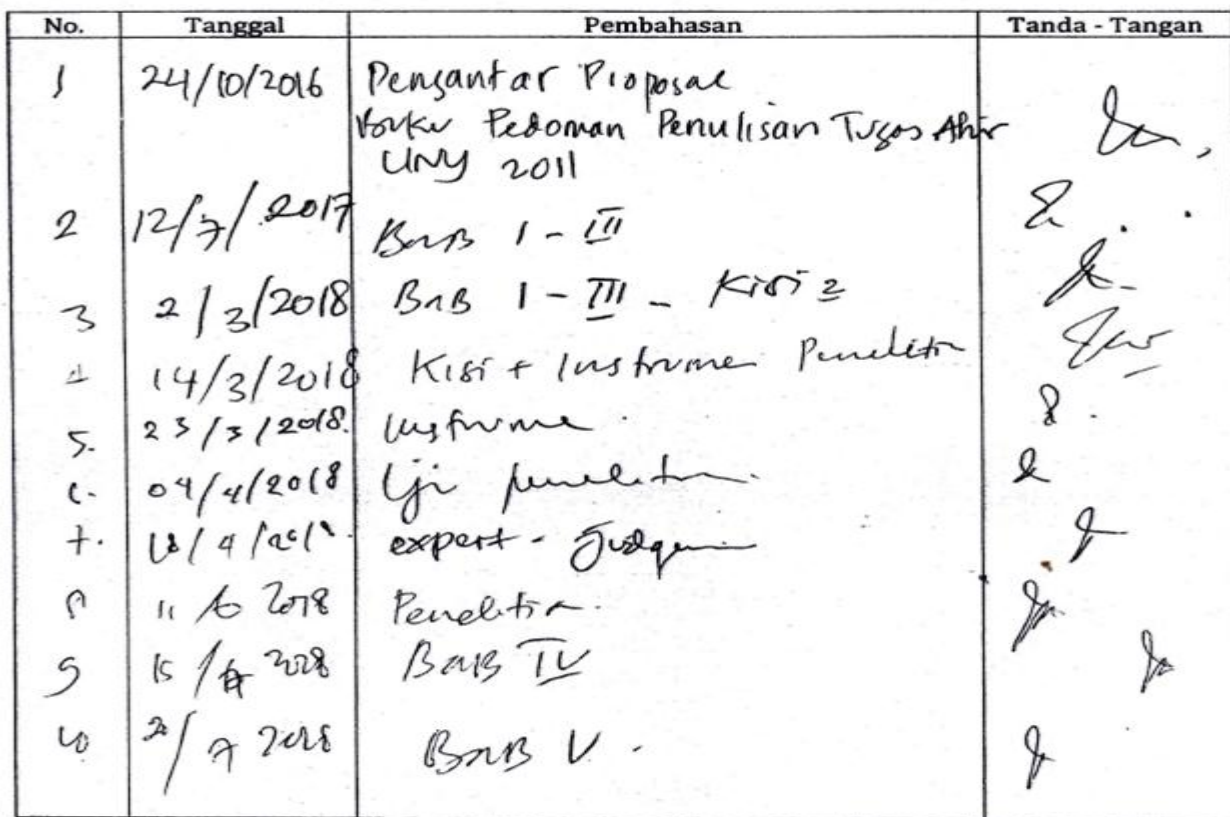 No. Tanggal Pembahasan Tanda - Tangan
1 24/10/2016 Pengantar Proposal
Buku Pedoman Penulisan Tugas Ahir
UNY 2011
2 12/7/2017 BAB I - III
3 2/3/2018 BAB I - III - Kisi2
4 14/3/2018 Kisi + Instrumen Penelitian
5. 23/3/2018. Instrumen
6. 04/4/2018 Uji penelitian.
7. expert - Judgement
8 11/6 2018 Penelitian.
9 15/ 2018 BAB IV
10 /7 2018 BAB V.